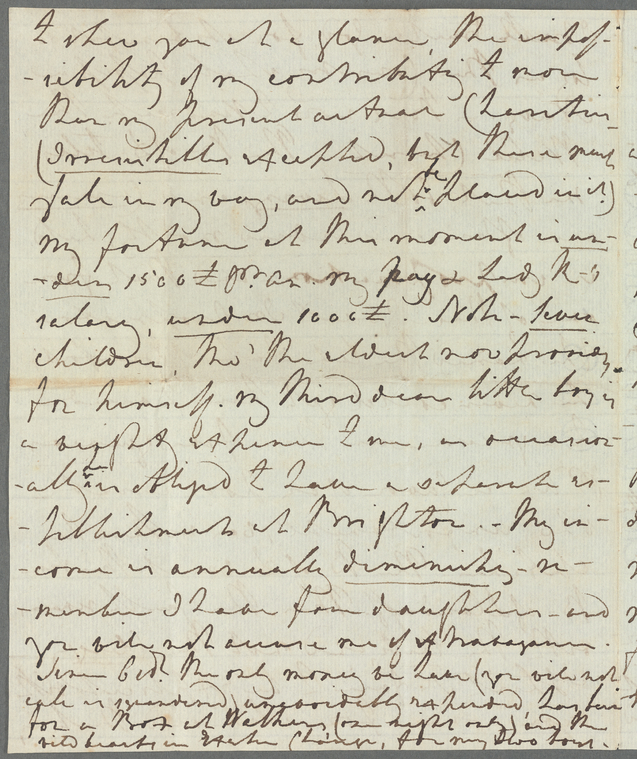 to shew you at a glance, the impos-
-sibility of my contributing to more
than my present actual Charities
(Irresistibles excepted, but these must
fall in my way, and not be placed in it)
My fortune at this moment is un-
-der 1500£ pr. an. my pay & Lady K-'s
salary, under 1000£. Note - seven
children, tho' the eldest now provides
for himself. My third dear little boy is
a weighty expence to me, as occasion-
-ally he is obliged to have a separate es-
-tablishment at Brighton. - My in-
-come is annually diminishing - re-
-member I have four daughters - and
you will not accuse me of extravagance.
Since the only money we have (you will not
call it squandered) unavoidably expended, has been
for a Box at Walkers (one night only) and the
wild beasts in Exeter Change, for my two boys.